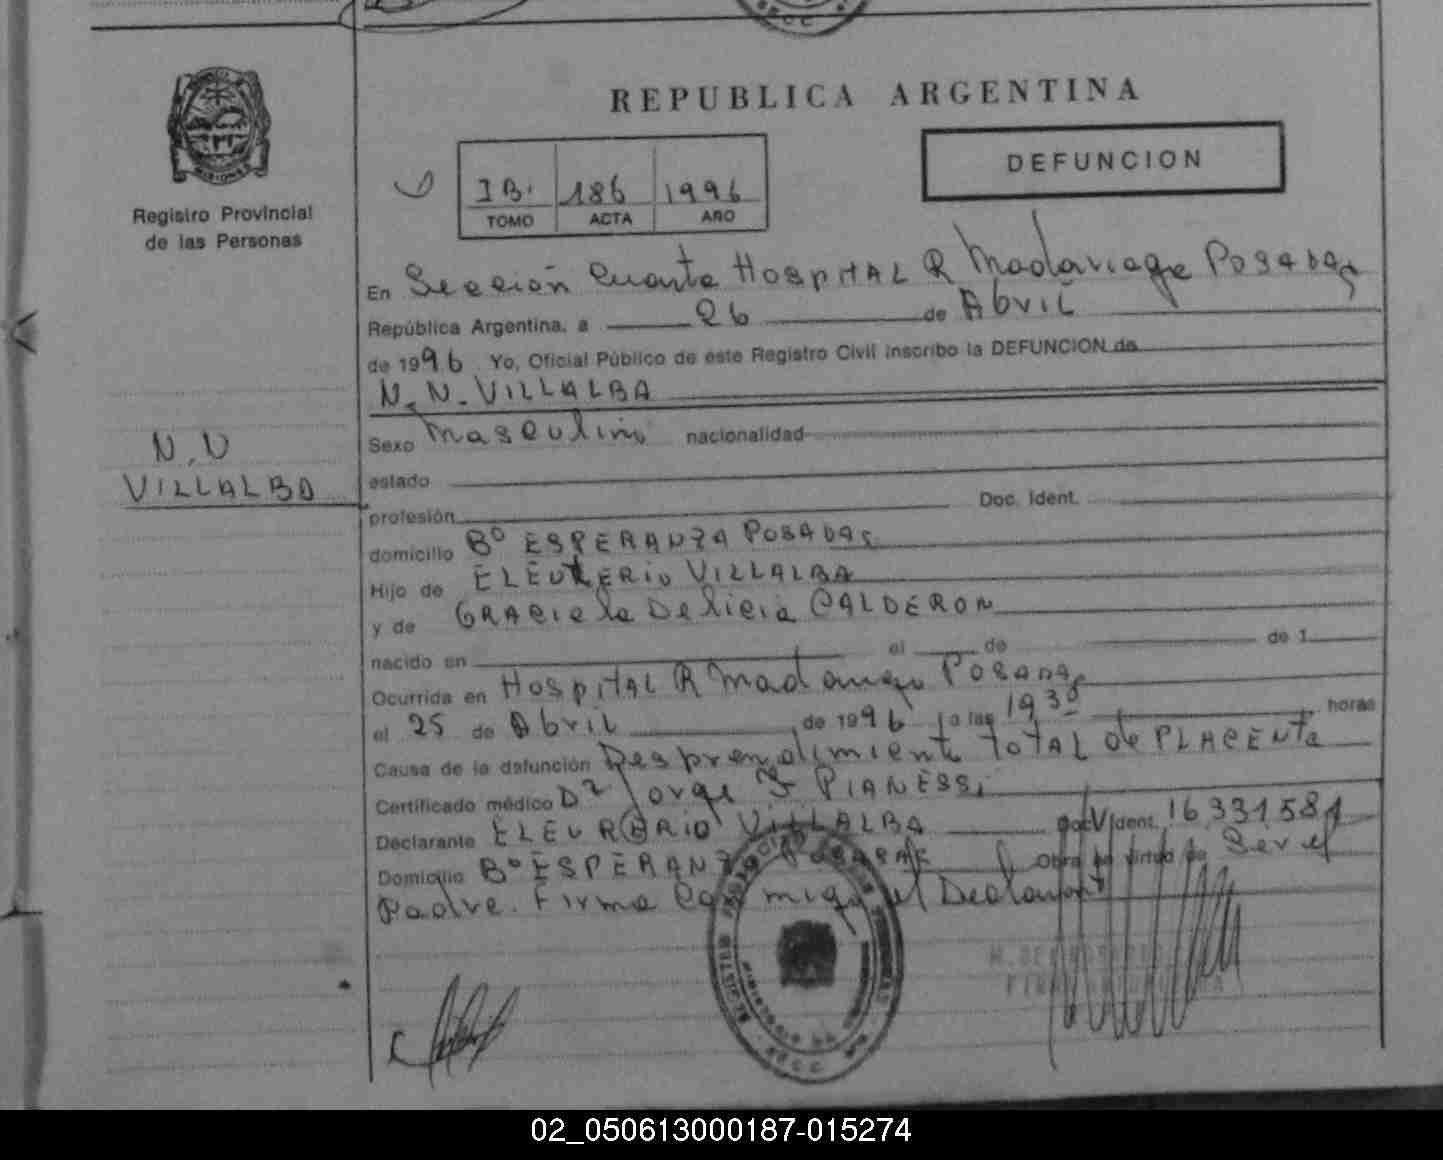 REPUBLICA ARGENTINA
DEFUNCION
IB. 186 1996
TOMO ACTA AÑO
Registro Provincial
de las Personas
En Sección Cuarta Hospital R Madariaga Posadas
República Argentina, a 26 de Abril
de 1996 Yo, Oficial Público de este Registro Civil inscribo la DEFUNCION de
N.N. VILLALBA
N.N
VILLALBA
Sexo Masculino nacionalidad
estado
profesión Doc. Ident.
domicilio Bº ESPERANZA POSADAS
Hijo de ELEUTERIO VILLALBA
y de GRACIELA Delicia CALDERON
nacido en el de de 1
Ocurrida en Hospital R Madariaga Posadas
el 25 de Abril de 1996 a las 19 30 horas
Causa de la defunción Desprendimiento TOTAL de PLACENTA
Certificado médico Dr Jorge F PIANESSI
Declarante ELEUTERIO VILLALBA Doc. Ident. 16.331.581
Domicilio Bº ESPERANZA POSADAS Obra en virtud de Ser el
Padre. Firma Conmigo el Declarante
02_050613000187-015274